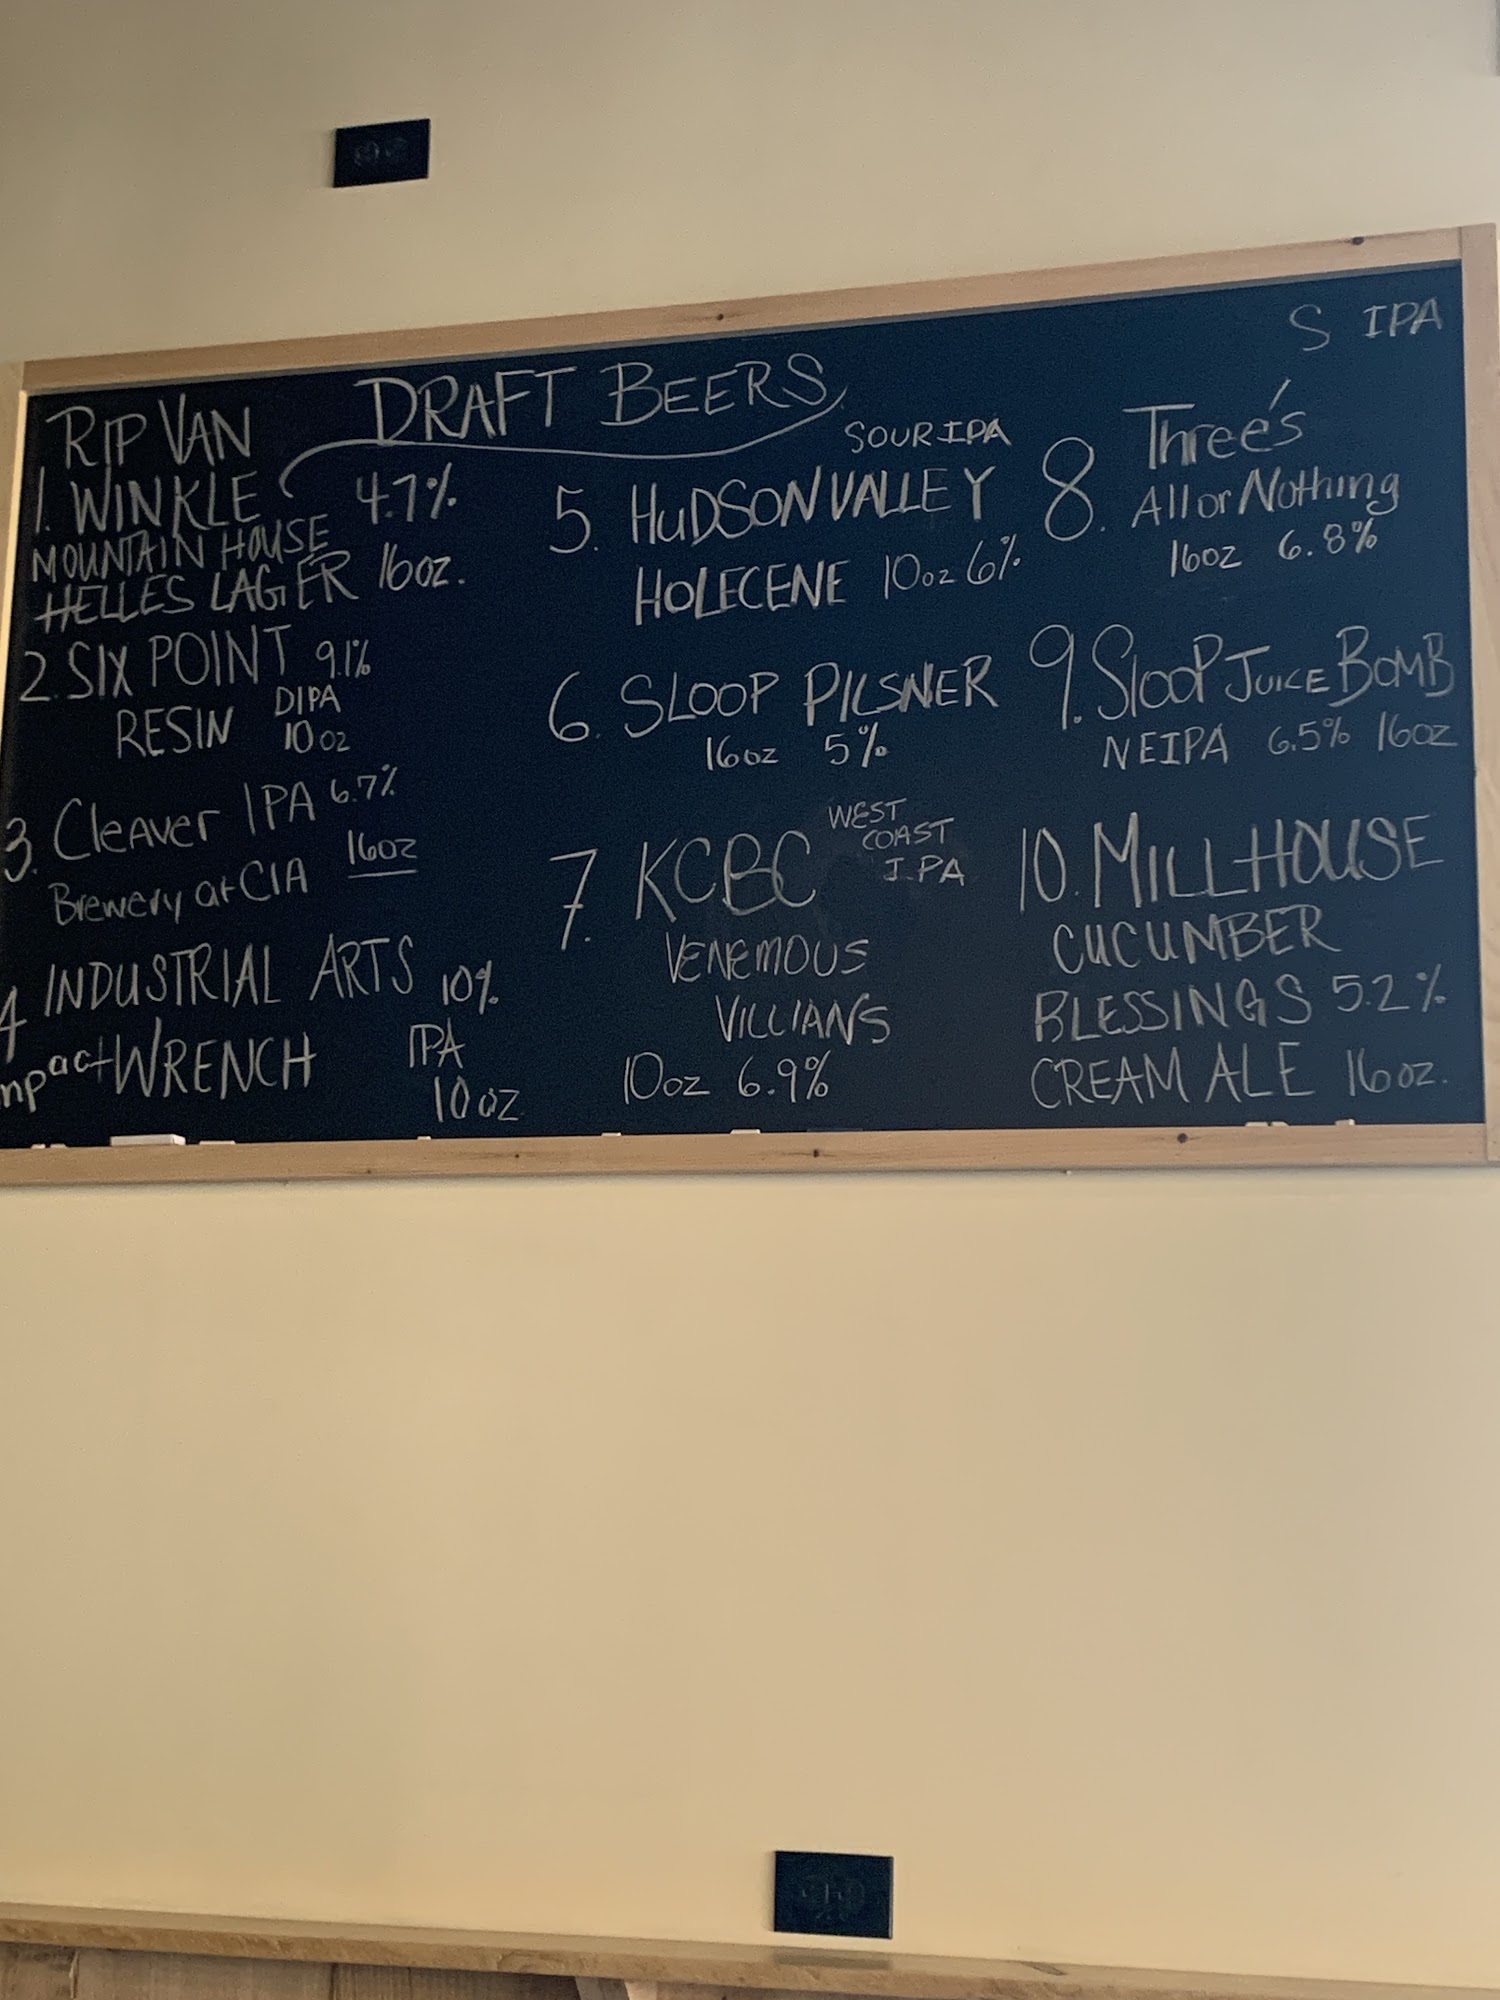 DRAFT BEERS
RIP VAN
1. WINKLE 4.7%
MOUNTAIN HOUSE
HELLES LAGER 16oz.
2. SIX POINT 9.1%
RESIN DIPA
10oz
3. Cleaver IPA 6.7%
Brewery at CIA 16oz
4 INDUSTRIAL ARTS 10%
mpact WRENCH IPA
10oz
SOUR IPA
5. HUDSON VALLEY
HOLECENE 10oz 6%
6. SLOOP PILSNER
16oz 5%
7. KCBC WEST
COAST
I.PA
VENEMOUS
VILLIANS
10oz 6.9%
S IPA
8. Three's
All or Nothing
16oz 6.8%
9. Sloop JUICE BOMB
NEIPA 6.5% 16oz
10. MILL HOUSE
CUCUMBER
BLESSINGS 5.2%
CREAM ALE 16oz.